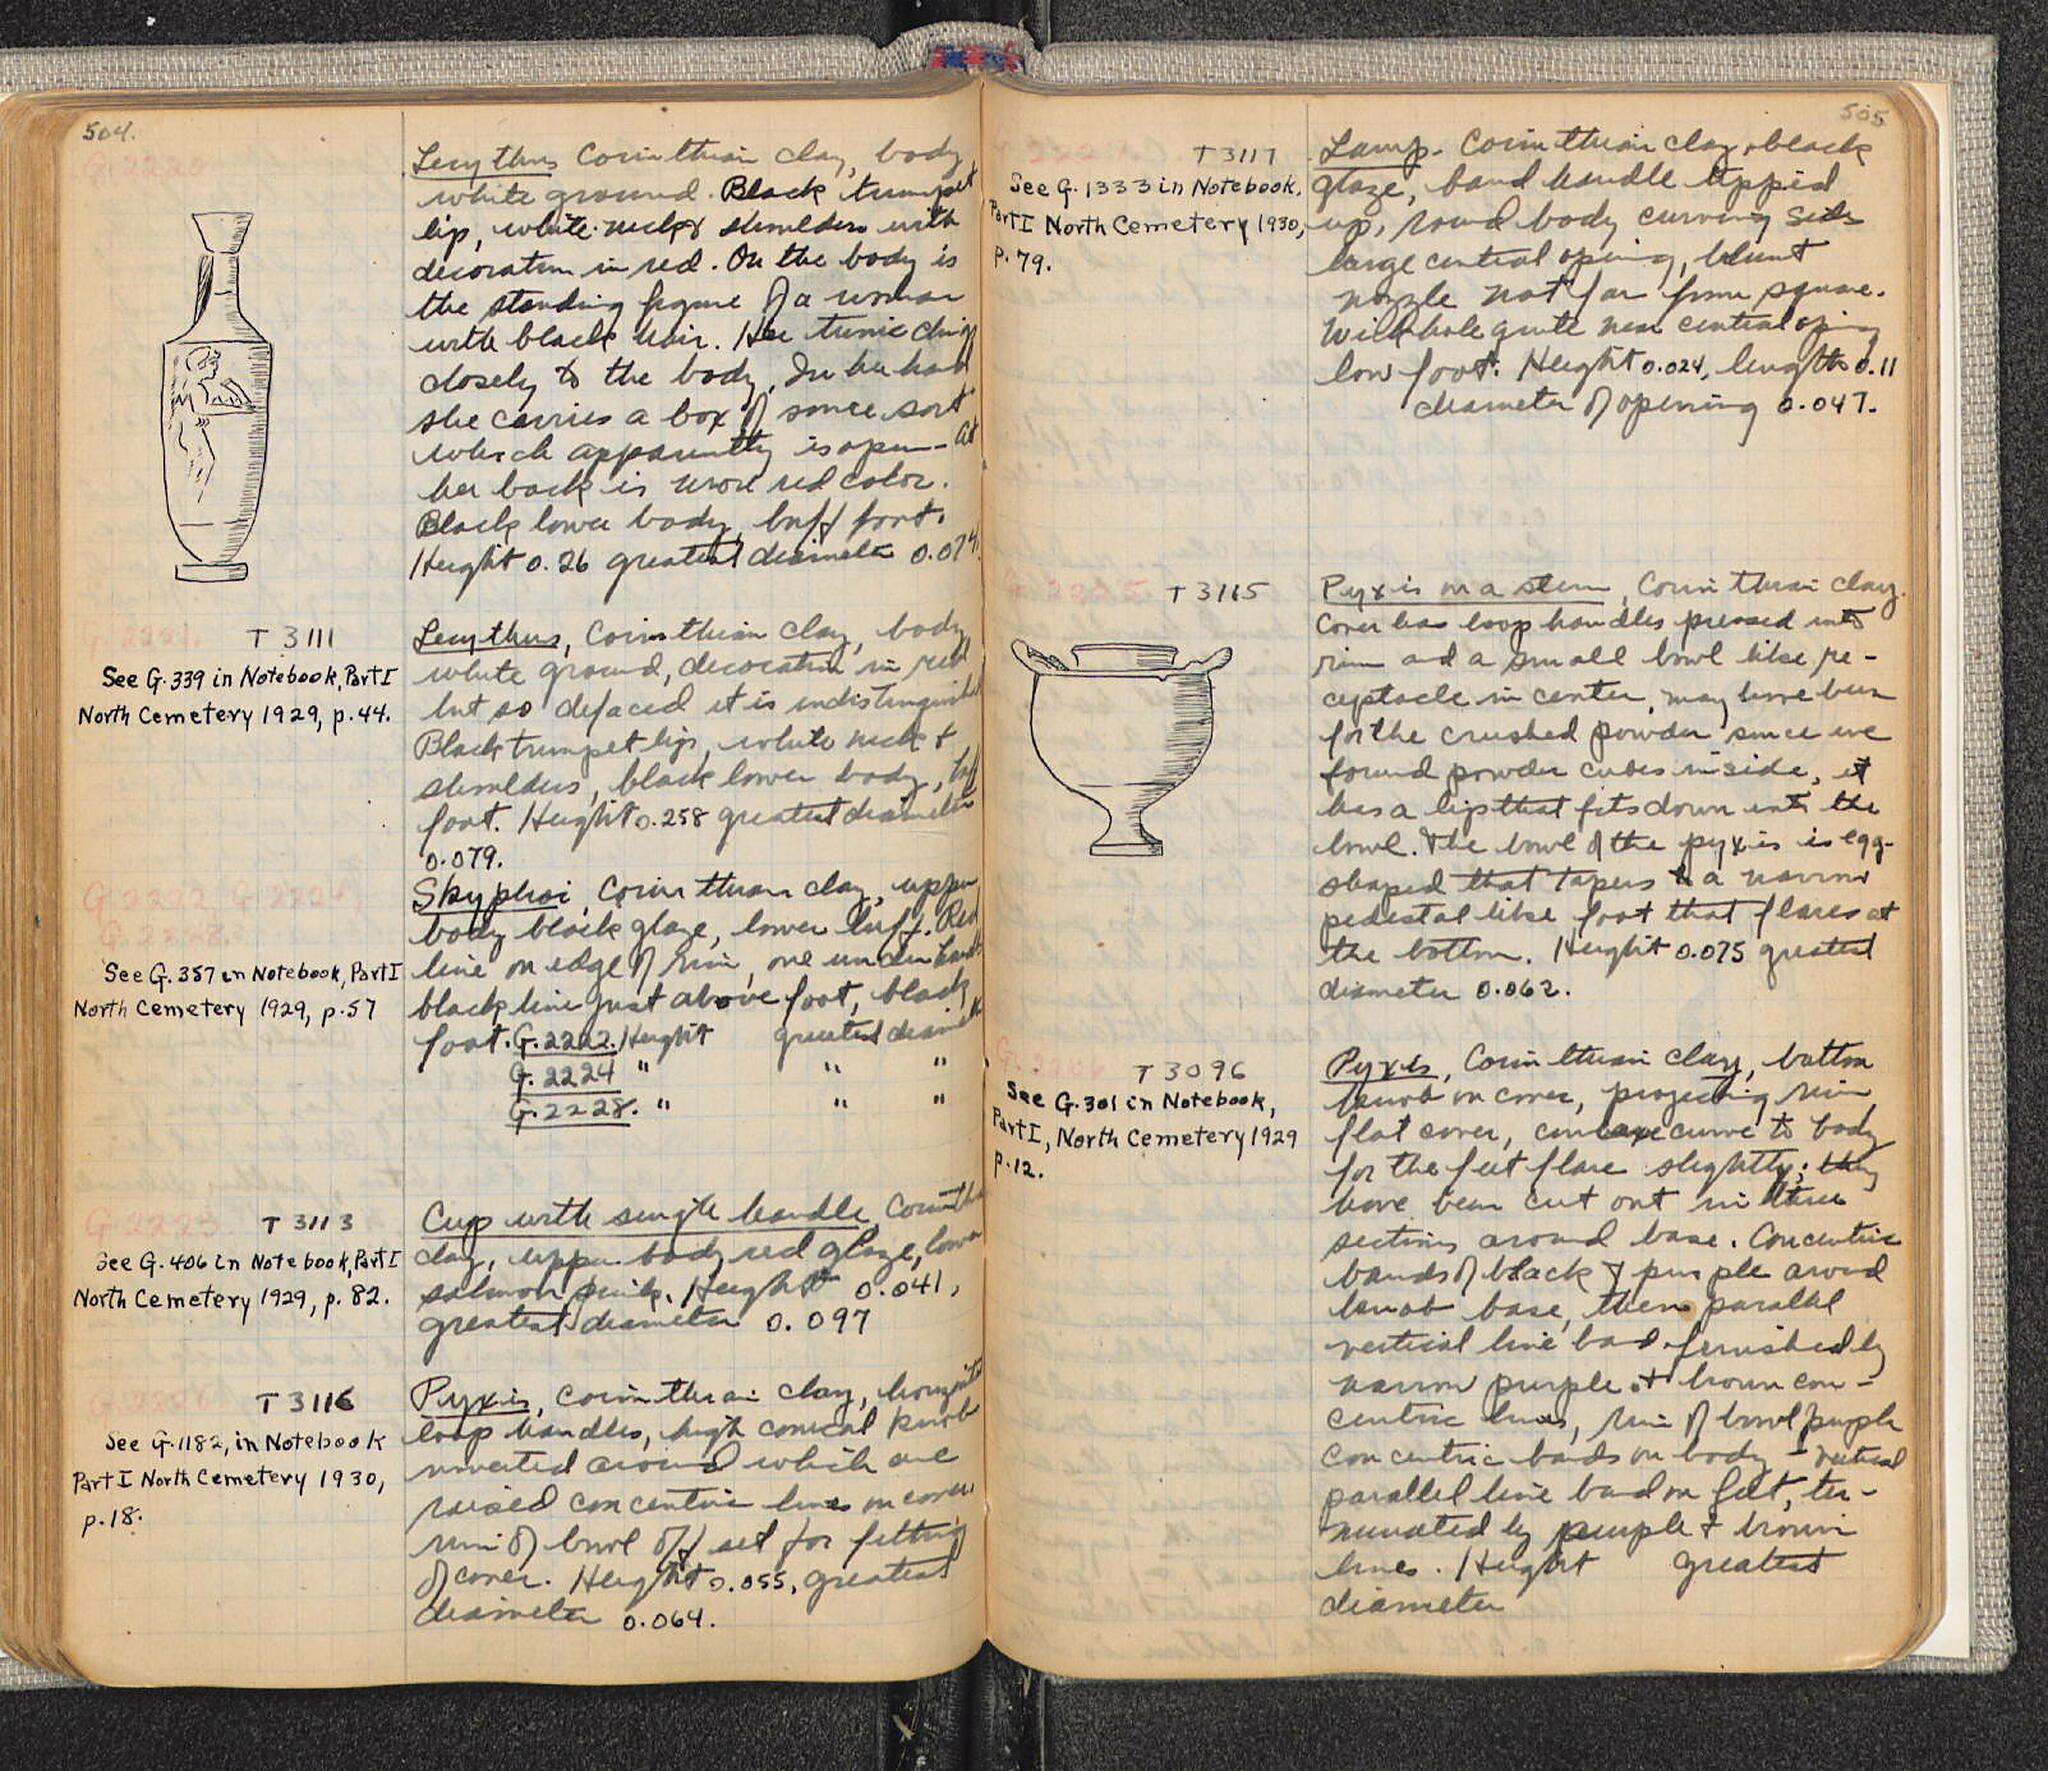 504.
G.2220
Lecythus Corinthian clay, body
white ground. Black trumpet
lip, white neck & shoulders with
decoration in red. On the body is
the standing figure of a woman
with black hair. Her tunic clings
closely to the body. In her hand
she carries a box of some sort
which apparently is open - at
her back is more red color.
Black lower body, buff foot.
Height 0.26 greatest diameter 0.074.
G.2221. T 3111
See G.339 in Notebook, Part I
North Cemetery 1929, p.44.
Lecythus, Corinthian clay, body
white ground, decoration in red
but so defaced it is indistinguished
Black trumpet lip, white neck &
shoulders, black lower body, buff
foot. Height 0.258 greatest diameter
0.079.
G.2222, G.2224,
G.2228.
See G.357 in Notebook, Part I
North Cemetery 1929, p.57
Skyphoi, Corinthian clay, upper
body black glaze, lower buff. Red
line on edge of rim, one under handles
black line just above foot, black
foot. G.2222. Height greatest diameter
G.2224 " " "
G.2228. " " "
G.2223 T 3113
See G.406 in Notebook, Part I
North Cemetery 1929, p. 82.
Cup with single handle, Corinthian
clay, upper body red glaze, lower
salmon pink. Height 0.041,
greatest diameter 0.097
T 3116
See G.1182, in Notebook
Part I North Cemetery 1930,
p.18.
Pyxis, Corinthian clay, horizontal
loop handles, high conical knob
inverted around which are
raised concentric lines on cover,
rim of bowl off set for fitting
of cover. Height 0.055, greatest
diameter 0.064.
505
T 3117
See G.1333 in Notebook,
Part I North Cemetery 1930,
p.79.
Lamp. Corinthian clay, black
glaze, band handle tipped
up, round body curving sides
large central opening, blunt
nozzle not far from square.
Wick hole quite near central opening
low foot. Height 0.024, length 0.11
diameter of opening 0.047.
G.2225 T 3115
Pyxis on a stem, Corinthian clay.
Cover has loop handles pressed into
rim and a small bowl like re-
ceptacle in center, may have been
for the crushed powder since we
found powder cubes inside, it
has a lip that fits down into the
bowl. The bowl of the pyxis is egg-
shaped that tapers to a narrow
pedestal like foot that flares at
the bottom. Height 0.075 greatest
diameter 0.062.
T 3096
See G.301 in Notebook,
Part I, North Cemetery 1929
p.12.
Pyxis, Corinthian clay, button
knob on cover, projecting rim
flat cover, concave curve to body
for the feet flare slightly; they
have been cut out in three
sections around base. Concentric
bands of black & purple around
knob base, then parallel
vertical line band finished by
narrow purple & brown con-
centric lines, rim of bowl purple
concentric bands on body - vertical
parallel line band on feet, ter-
minated by purple & brown
lines. Height greatest
diameter